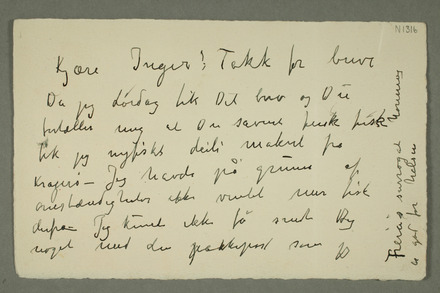 N 1316
Kjære Inger! Takk for brev
Da jeg lørdag fik Dit brev og Du
fortæller mig at Du savner fersk fisk
fik jeg nyfisket deili makrel fra
Kragerø – Jeg havde på grund af
omstændigheter ikke ventet mer fisk
derfra – Jeg kunde ikke få sendt Dig
noget med den pakkepost som
er god for helsen